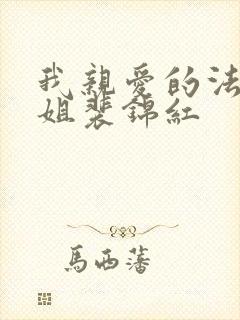 我親愛的法
姐裴錦紅
馬西藩